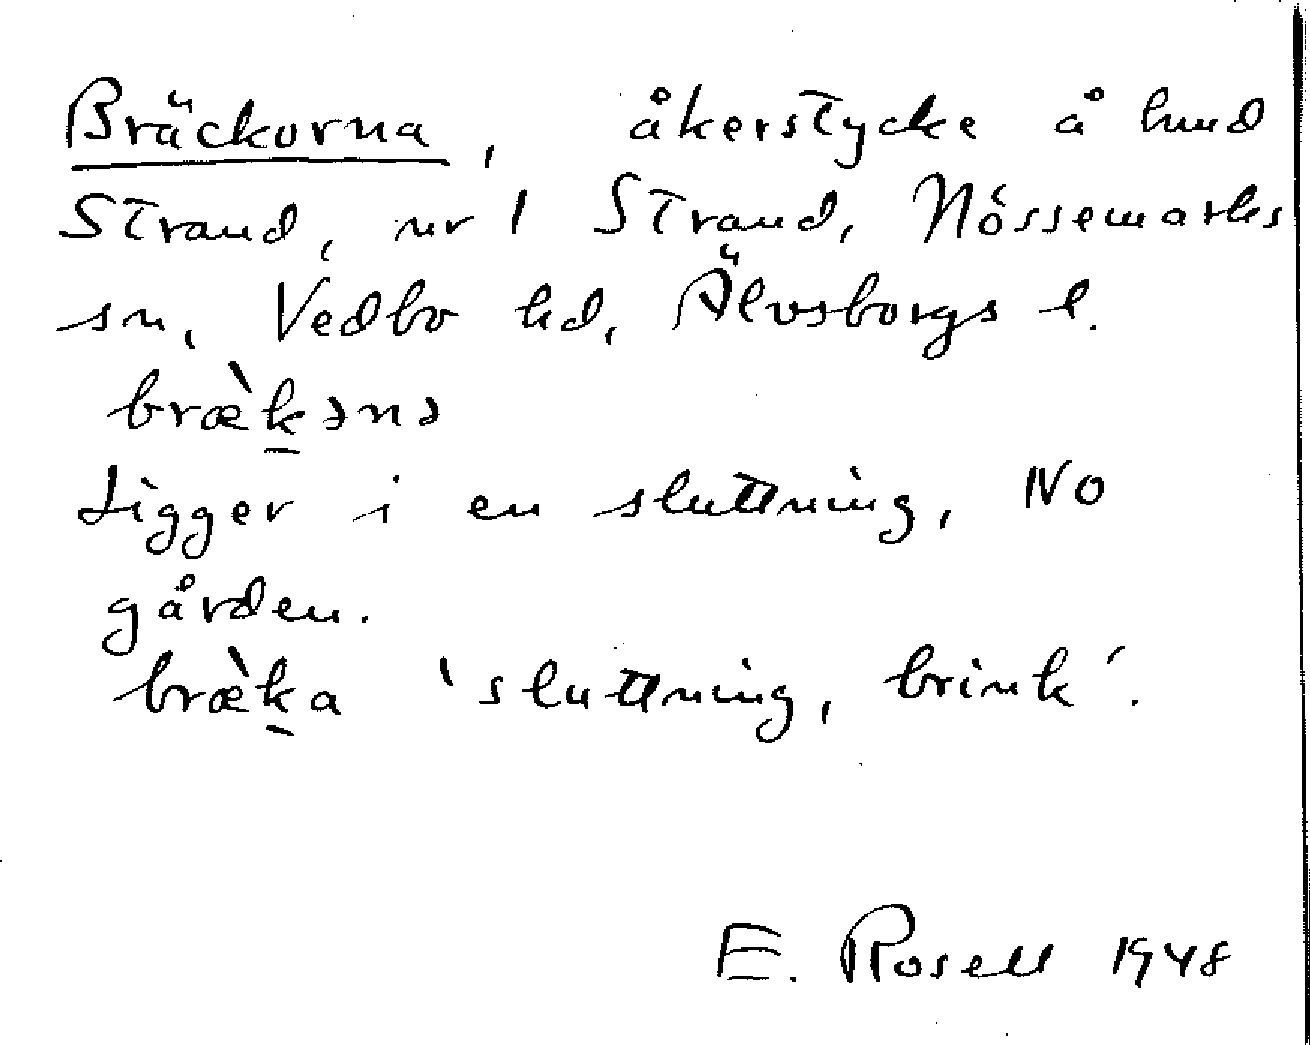 Bräckorna, åkerstycke å hmd
Strand, nr 1 Strand, Nössemarks
sn, Vedbo hd, Älvsborgs l.
bræ̀kənə
Ligger i en sluttning, NO
gården.
bræ̀ka 'sluttning, brink'.
E. Rosell 1948